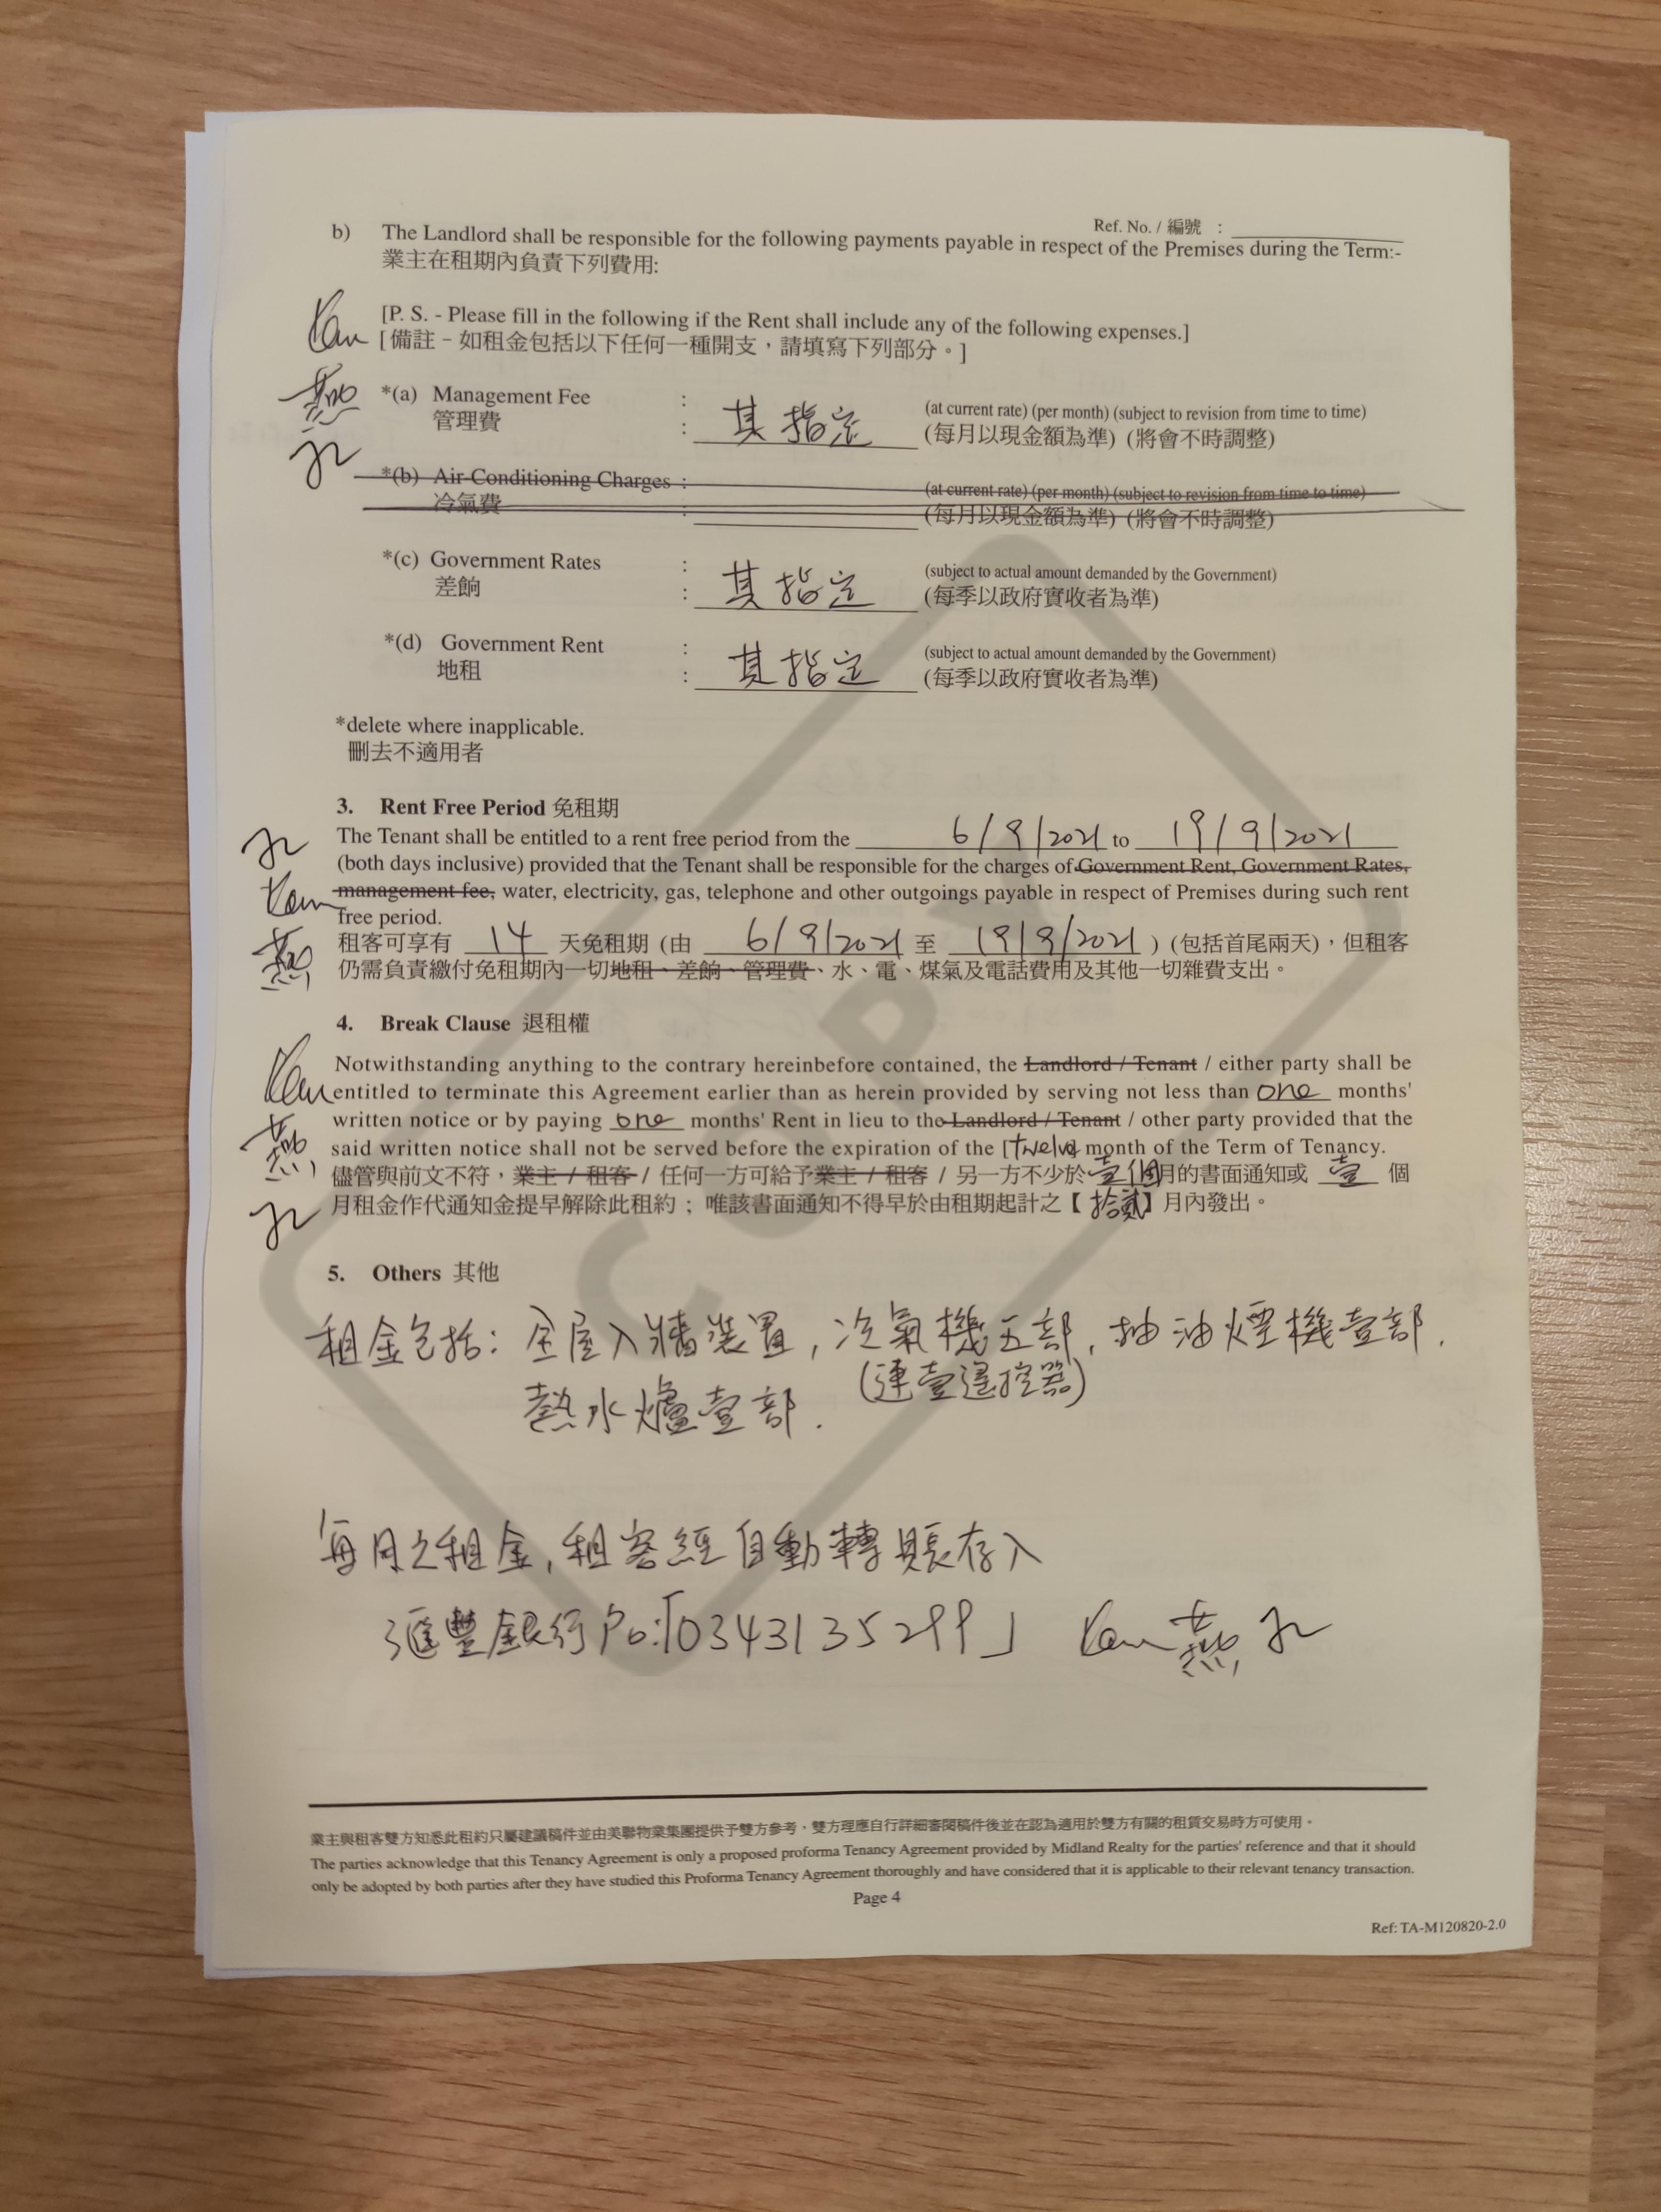 Ref. No. / 編號 :
b) The Landlord shall be responsible for the following payments payable in respect of the Premises during the Term:-
業主在租期內負責下列費用:
[P. S. - Please fill in the following if the Rent shall include any of the following expenses.]
[備註 - 如租金包括以下任何一種開支，請填寫下列部分。]
*(a) Management Fee : (at current rate) (per month) (subject to revision from time to time)
管理費 : 其指定 (每月以現金額為準) (將會不時調整)
*(b) Air-Conditioning Charges : (at current rate) (per month) (subject to revision from time to time)
冷氣費 : (每月以現金額為準) (將會不時調整)
*(c) Government Rates : (subject to actual amount demanded by the Government)
差餉 : 其指定 (每季以政府實收者為準)
*(d) Government Rent : (subject to actual amount demanded by the Government)
地租 : 其指定 (每季以政府實收者為準)
*delete where inapplicable.
刪去不適用者
3. Rent Free Period 免租期
The Tenant shall be entitled to a rent free period from the 6/9/2021 to 19/9/2021
(both days inclusive) provided that the Tenant shall be responsible for the charges of Government Rent, Government Rates,
management fee, water, electricity, gas, telephone and other outgoings payable in respect of Premises during such rent
free period.
租客可享有 14 天免租期 (由 6/9/2021 至 19/9/2021 ) (包括首尾兩天)，但租客
仍需負責繳付免租期內一切地租、差餉、管理費、水、電、煤氣及電話費用及其他一切雜費支出。
4. Break Clause 退租權
Notwithstanding anything to the contrary hereinbefore contained, the Landlord / Tenant / either party shall be
entitled to terminate this Agreement earlier than as herein provided by serving not less than one months'
written notice or by paying one months' Rent in lieu to the Landlord / Tenant / other party provided that the
said written notice shall not be served before the expiration of the [twelve month of the Term of Tenancy.
儘管與前文不符，業主 / 租客 / 任何一方可給予業主 / 租客 / 另一方不少於壹個月的書面通知或 壹 個
月租金作代通知金提早解除此租約；唯該書面通知不得早於由租期起計之【拾貳】月內發出。
5. Others 其他
租金包括: 全屋入牆裝置, 冷氣機五部, 抽油煙機壹部.
(連壹遙控器)
熱水爐壹部.
每月之租金, 租客經自動轉賬存入
滙豐銀行 No:「034313529９」
Kan 燕
業主與租客雙方知悉此租約只屬建議稿件並由美聯物業集團提供予雙方參考，雙方理應自行詳細審閱稿件後並在認為適用於雙方有關的租賃交易時方可使用。
The parties acknowledge that this Tenancy Agreement is only a proposed proforma Tenancy Agreement provided by Midland Realty for the parties' reference and that it should
only be adopted by both parties after they have studied this Proforma Tenancy Agreement thoroughly and have considered that it is applicable to their relevant tenancy transaction.
Page 4
Ref: TA-M120820-2.0
COPY